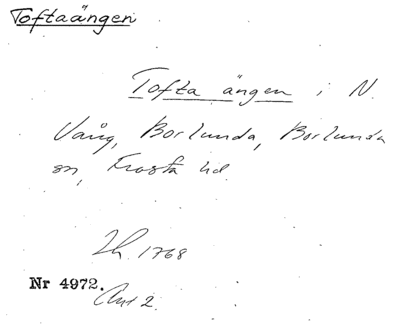 Toftaängen
Tofta ängen i N.
Vång, Borlunda, Borlunda
sn, Frosta hd.
Lh. 1768
Nr 4972.
Akt 2.